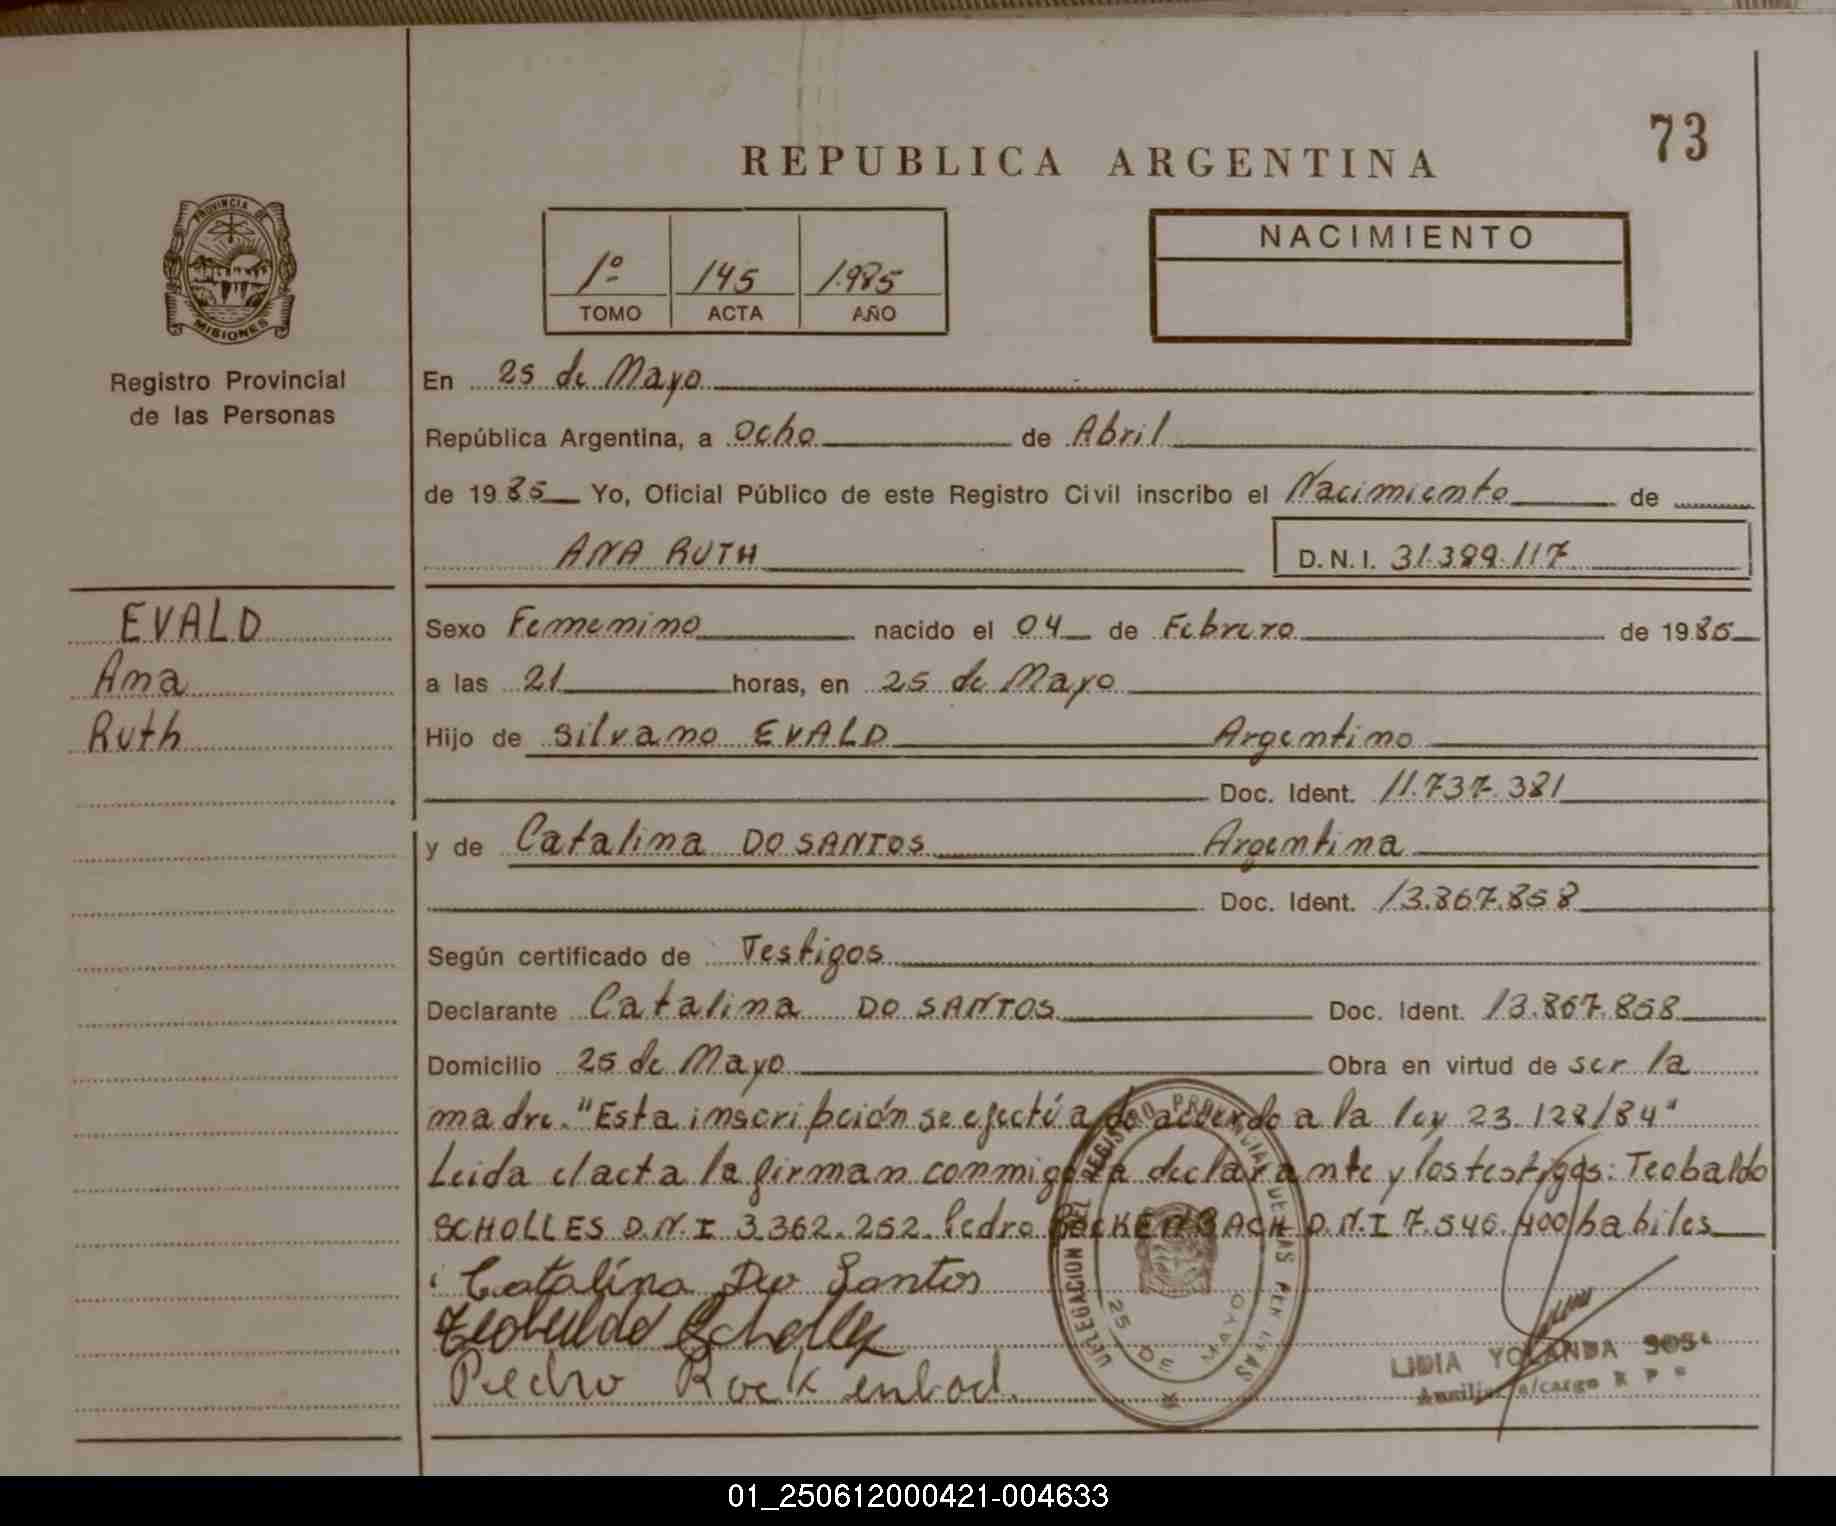 73
REPUBLICA ARGENTINA
PROVINCIA DE
MISIONES
1º 145 1.985
TOMO ACTA AÑO
NACIMIENTO
Registro Provincial
de las Personas
En 25 de Mayo
República Argentina, a ocho de Abril
de 1985 Yo, Oficial Público de este Registro Civil inscribo el Nacimiento de
ANA RUTH D.N.I. 31.399.117
EVALD
Ana
Ruth
Sexo Femenino nacido el 04 de Febrero de 1985
a las 21 horas, en 25 de Mayo
Hijo de Silvano EVALD Argentino
Doc. Ident. 11.737.381
y de Catalina DO SANTOS Argentina
Doc. Ident. 13.867.858
Según certificado de Testigos
Declarante Catalina DO SANTOS Doc. Ident. 13.867.858
Domicilio 25 de Mayo Obra en virtud de ser la
madre. "Esta inscripción se efectúa de acuerdo a la ley 23.128/84"
Leida el acta la firman conmigo la declarante y los testigos: Teobaldo
SCHOLLES D.N.I 3.362.252. Pedro ROCKENBACH D.N.I 7.546.400 habiles
Catalina Do Santos
Teobaldo Scholles
Pedro Rockenbach.
DELEGACION DEL REGISTRO PROVINCIAL DE LAS PERSONAS
25 DE MAYO
LIDIA YOLANDA SOSA
Auxiliar a/cargo R P
01_250612000421-004633